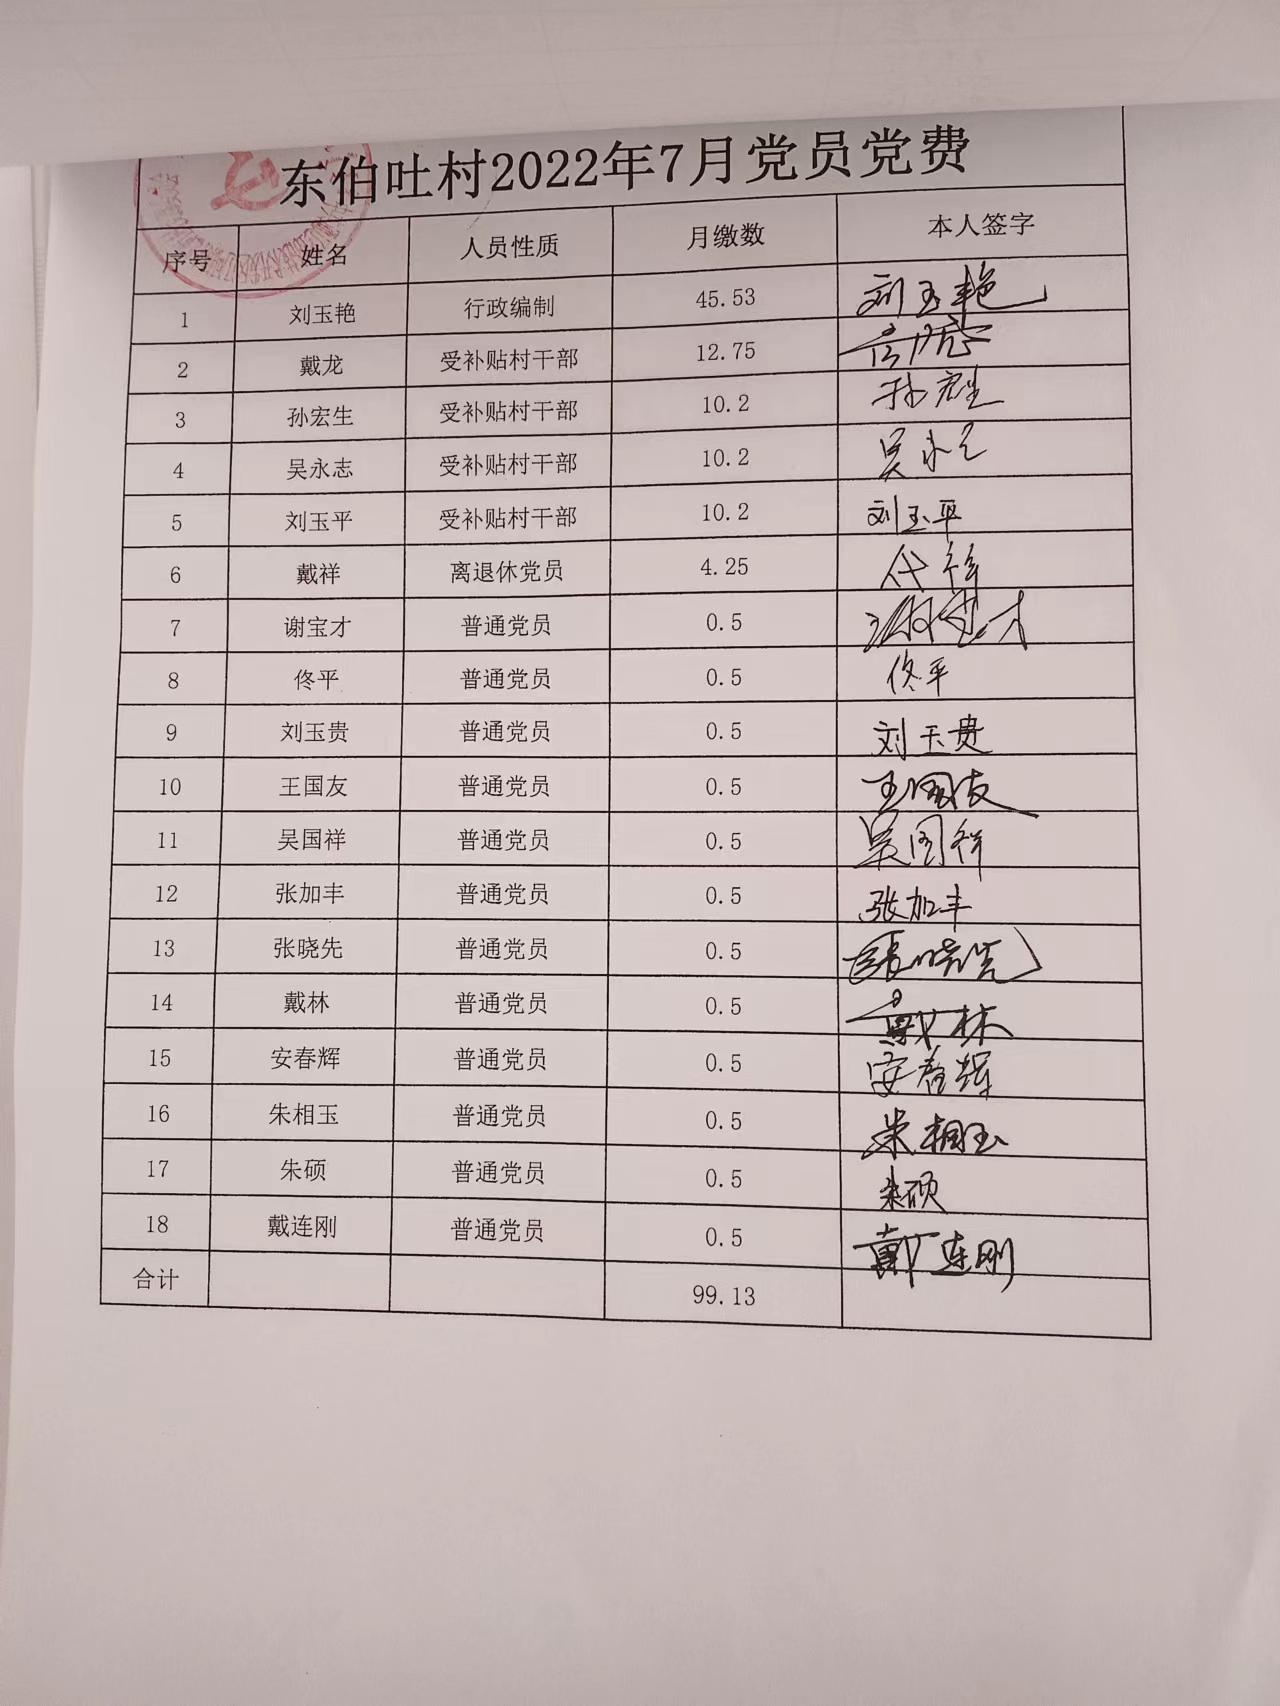 东伯吐村2022年7月党员党费
序号 姓名 人员性质 月缴数 本人签字
1 刘玉艳 行政编制 45.53 刘玉艳
2 戴龙 受补贴村干部 12.75
3 孙宏生 受补贴村干部 10.2 孙宏生
4 吴永志 受补贴村干部 10.2 吴永志
5 刘玉平 受补贴村干部 10.2 刘玉平
6 戴祥 离退休党员 4.25 代祥
7 谢宝才 普通党员 0.5 谢宝才
8 佟平 普通党员 0.5 佟平
9 刘玉贵 普通党员 0.5 刘玉贵
10 王国友 普通党员 0.5 王国友
11 吴国祥 普通党员 0.5 吴国祥
12 张加丰 普通党员 0.5 张加丰
13 张晓先 普通党员 0.5 张晓先
14 戴林 普通党员 0.5 戴林
15 安春辉 普通党员 0.5 安春辉
16 朱相玉 普通党员 0.5 朱相玉
17 朱硕 普通党员 0.5 朱硕
18 戴连刚 普通党员 0.5 戴连刚
合计 99.13